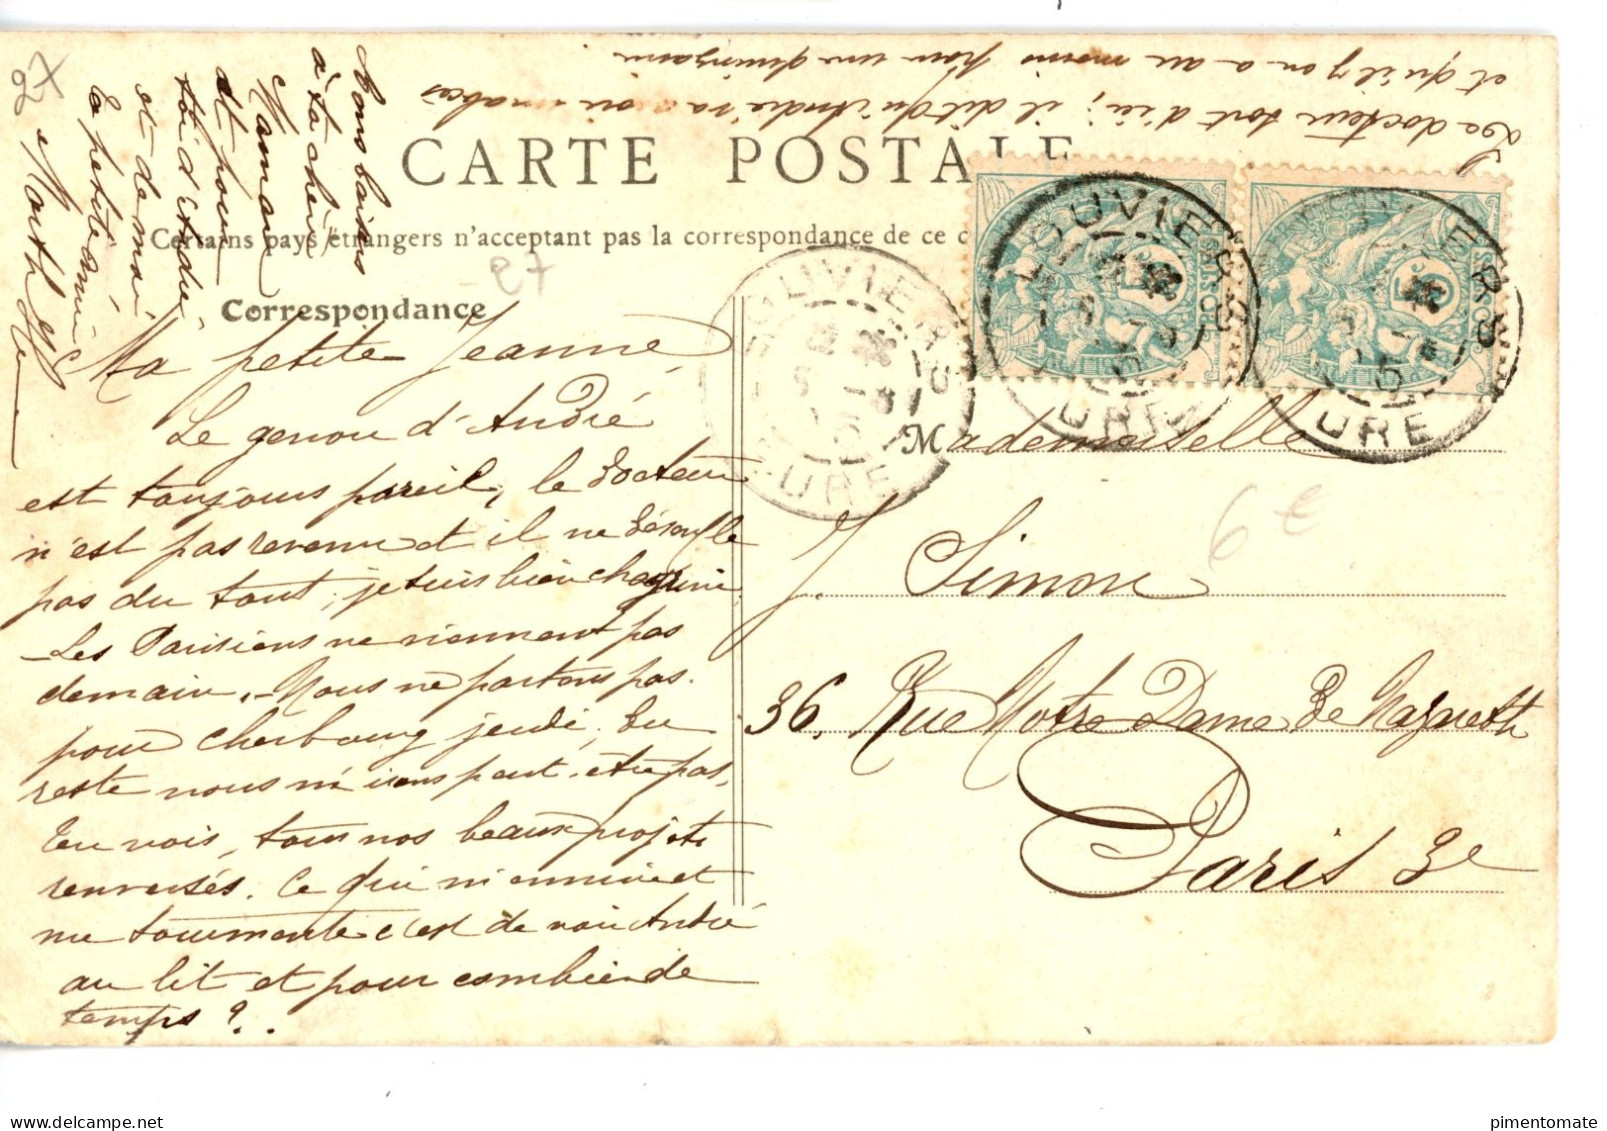 Le docteur sort d'ici ; il dit qu'André va avoir un abcès
et qu'il y en a au moins pour une quinzaine
CARTE POSTALE
Certains pays étrangers n'acceptent pas la correspondance de ce c
Correspondance
Ma petite Jeanne,
Le genou d'André
est toujours pareil, le docteur
n'est pas revenu et il ne désenfle
pas du tout ; je suis bien chagrine
Les Parisiens ne viennent pas
demain. Nous ne partons pas
pour Cherbourg jeudi, du
reste nous n'irons peut-être pas.
Tu vois, tous nos beaux projets
renversés. Ce qui m'ennuie et
me tourmente c'est de voir André
au lit et pour combien de
temps ?..
Bons baisers
à ta chère
Maman
et pour
toi d'André
et de moi
ta petite amie
Marthe
27
27
LOUVIERS
EURE
LOUVIERS
EURE
LOUVIERS
EURE
Mademoiselle
J. Simon
36. Rue Notre Dame de Nazareth
Paris 3e
6 €
pimentomate
delcampe.net